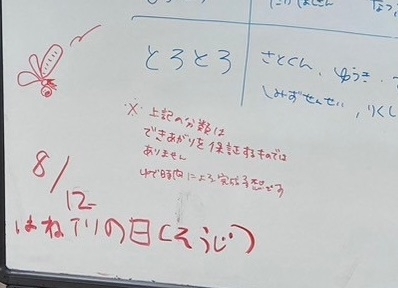 とろとろ
さとくん、ゆうき、
しみずせんせい、りくし
※上記の分数は
できあがりを保証するものでは
ありません
ゆで時間による完成予想です
8/12
はねアリの日(そうじ)